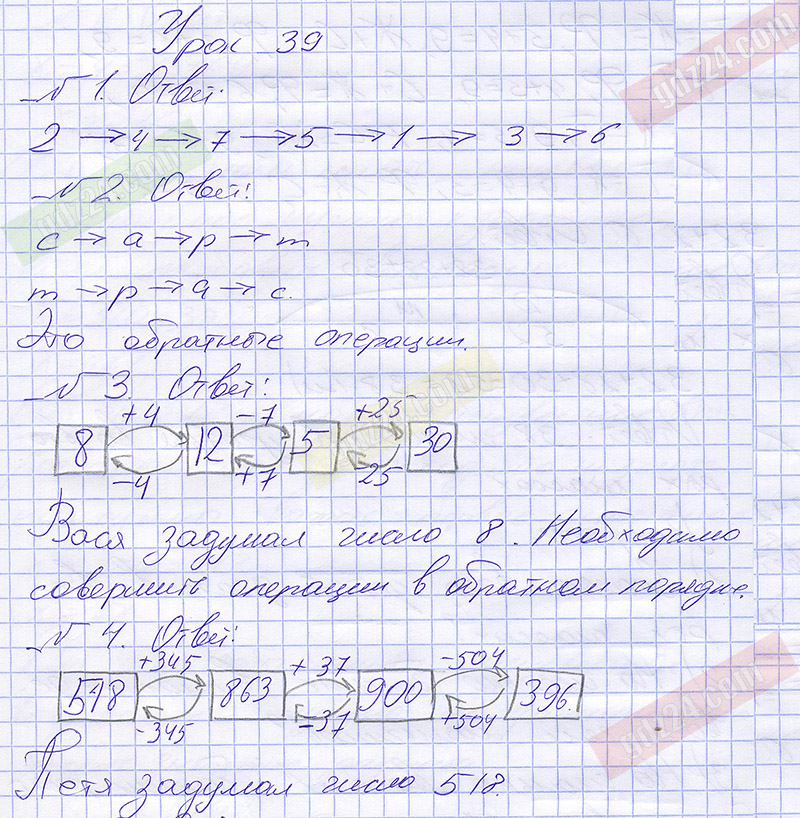 Урок 39
№ 1. Ответ:
2 → 4 → 7 → 5 → 1 → 3 → 6
№ 2. Ответ:
с → а → р → т
т → р → а → с.
Это обратные операции.
№ 3. Ответ:
+4 -7 +25
8 12 5 30
-4 +7 -25
Вася задумал число 8. Необходимо
совершить операции в обратном порядке.
№ 4. Ответ:
+345 +37 -504
518 863 900 396.
-345 -37 +504
Петя задумал число 518.
ydz24.com
ydz24.com
ydz24.com